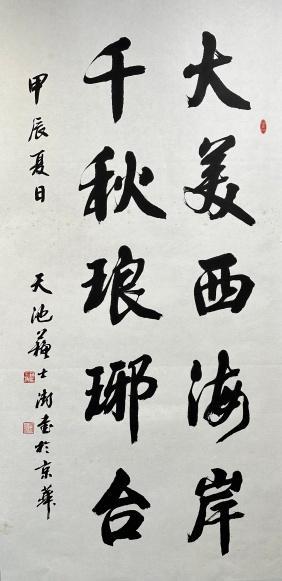 大美西海岸
千秋琅琊台
甲辰夏日
天池苏士澍书于京华